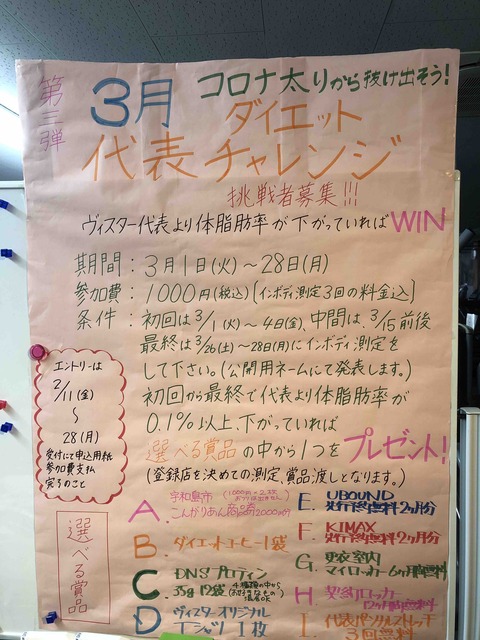 第三弾
コロナ太りから抜け出そう!
3月 ダイエット
代表チャレンジ
挑戦者募集!!!
ヴィスター代表より体脂肪率が下がっていればWIN
期間:3月1日(火)〜28日(月)
参加費:1000円(税込)[インボディ測定3回の料金込]
条件:初回は3/1(火)〜4日(金)、中間は、3/15前後
最終は3/26(土)〜28日(月)にインボディ測定を
して下さい。(公開用ネームにて発表します。)
初回から最終で代表より体脂肪率が
0.1%以上、下がっていれば
選べる賞品の中から1つをプレゼント!
(登録店を決めての測定、賞品渡しとなります。)
エントリーは
2/11(金)
〜
28(月)
受付にて申込用紙
参加費支払
完了のこと
選べる賞品
A. 宇和島市
こんがりあん商品券2000円分
B. ダイエットコーヒー1袋
C. DNSプロテイン
35g 12袋
D ヴィスターオリジナル
Tシャツ 1枚
E. UBOUND
2ヶ月分
F. KIMAX
2ヶ月分
G. 更衣室内
マイロッカー6ヶ月無料
H 契約ロッカー
12ヶ月無料
I. 代表パーソナルストレッチ
3回無料